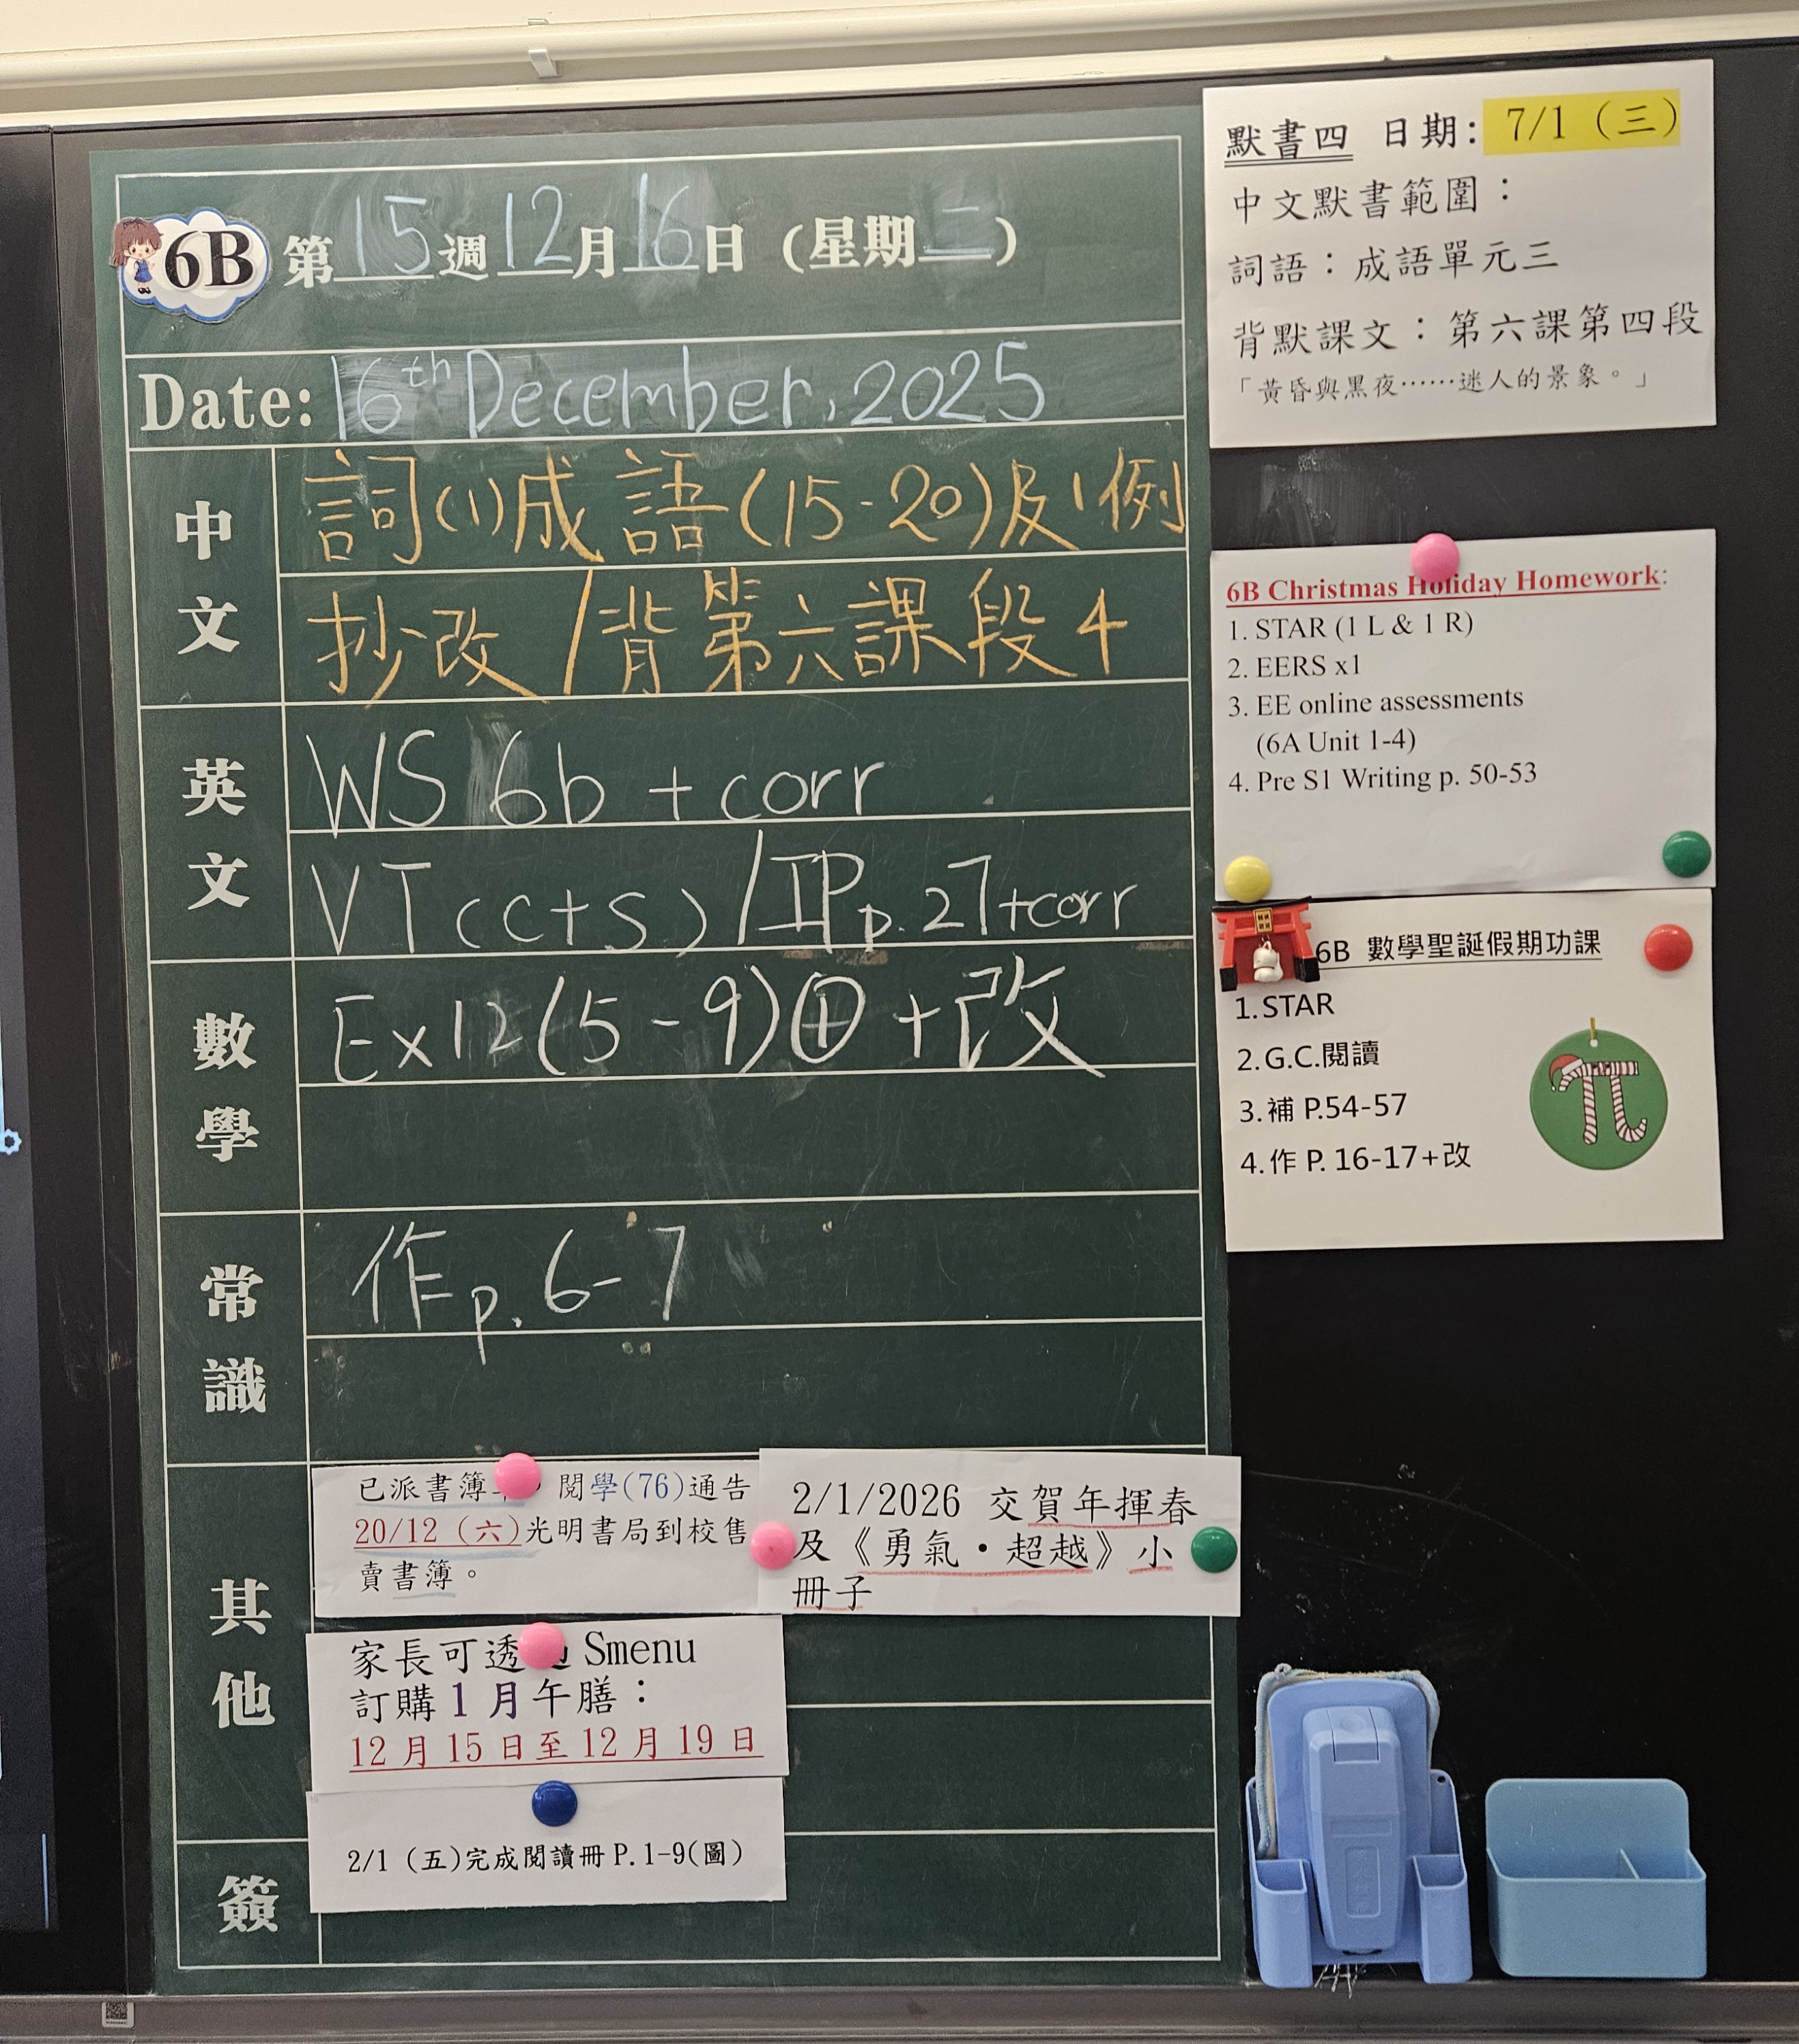 6B 第15週12月16日（星期二）
Date: 16th December, 2025
中文
詞(1)成語(15-20)及1例
抄改/背第六課段4
英文
WS 6b + corr
VT (C+S) / IP p. 27+corr
數學
Ex12(5-9)㊉+改
常識
作p. 6-7
其他
已派書簿 閱學(76)通告
20/12（六）光明書局到校售
賣書簿。
2/1/2026 交賀年揮春
及《勇氣・超越》小
冊子
家長可透 Smenu
訂購1月午膳：
12月15日至12月19日
2/1（五）完成閱讀冊P.1-9(圖)
簽
默書四 日期: 7/1（三）
中文默書範圍：
詞語：成語單元三
背默課文：第六課第四段
「黃昏與黑夜……迷人的景象。」
6B Christmas Holiday Homework:
1. STAR (1 L & 1 R)
2. EERS x1
3. EE online assessments
(6A Unit 1-4)
4. Pre S1 Writing p. 50-53
6B 數學聖誕假期功課
1.STAR
2.G.C.閱讀
3.補 P.54-57
4.作 P. 16-17+改